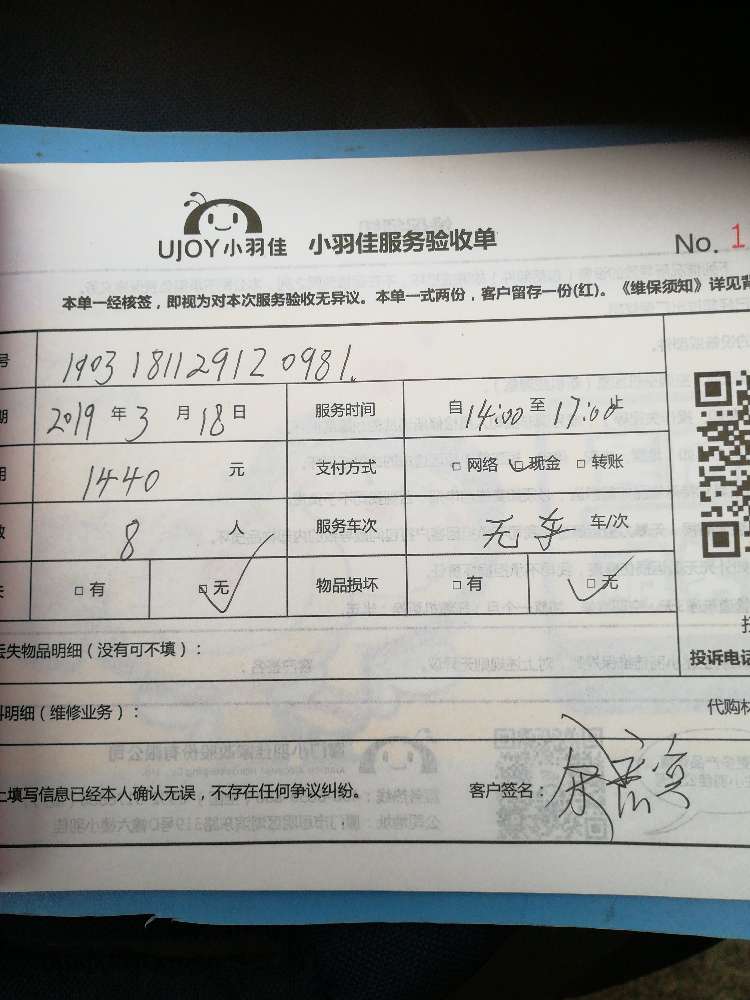 UJOY小羽佳 小羽佳服务验收单 No. 1
本单一经核签，即视为对本次服务验收无异议。本单一式两份，客户留存一份(红)。《维保须知》详见背
号 190318112912 0981
期 2019 年 3 月 18 日 服务时间 自 14:00 至 17:00 止
用 1440 元 支付方式 □ 网络 □ 现金 □ 转账
数 8 人 服务车次 无车 车/次
失 □ 有 □ 无 物品损坏 □ 有 □ 无
丢失物品明细（没有可不填）：
投诉电话
料明细（维修业务）：
代购材
上填写信息已经本人确认无误，不存在任何争议纠纷。 客户签名：